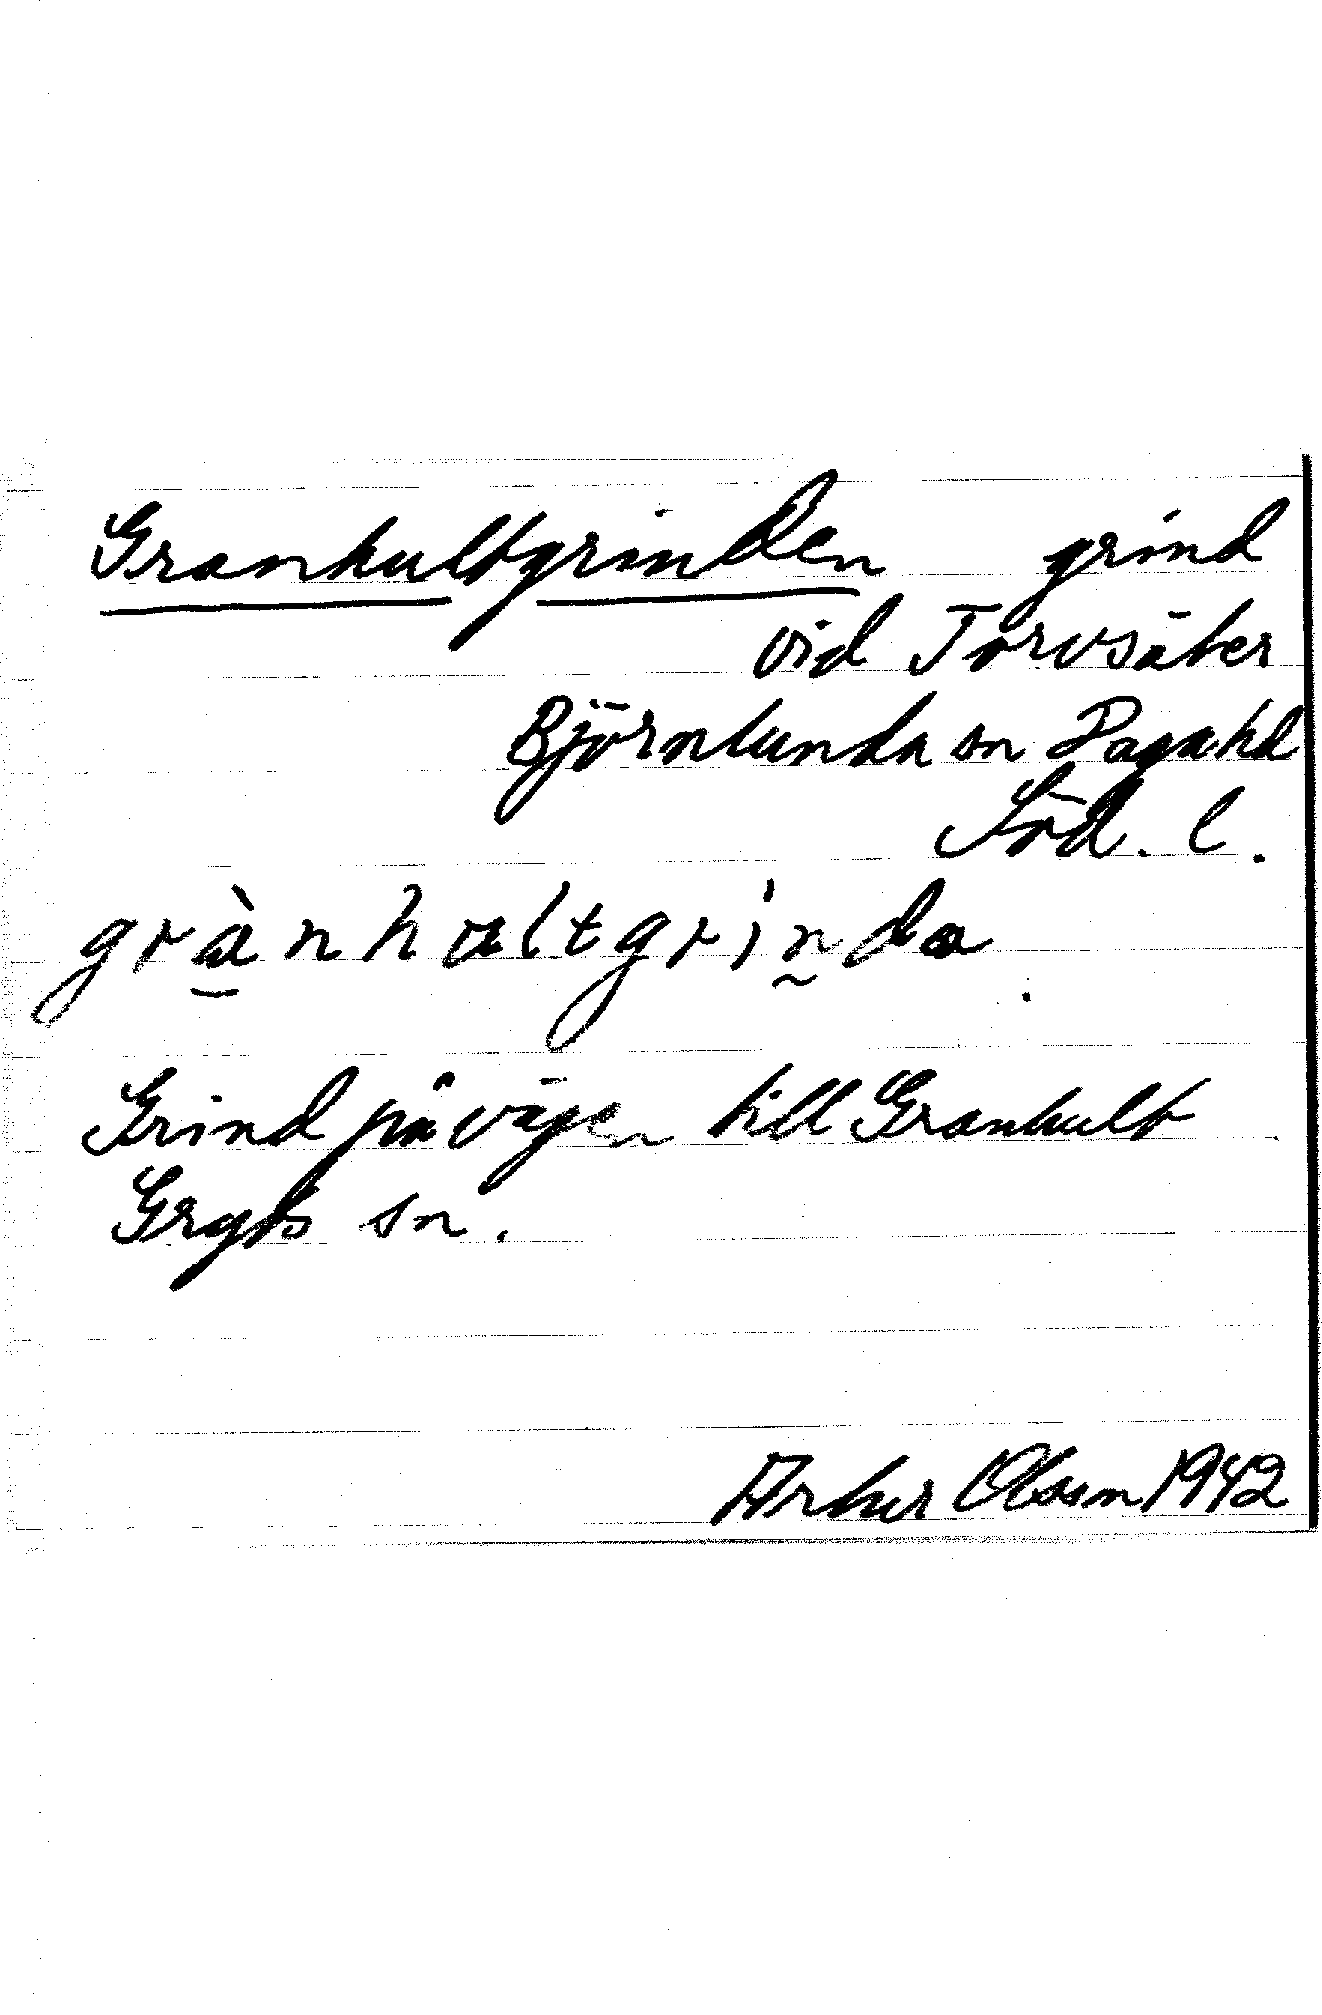 Granhultgrinden grind
vid Torvsäter
Björnlunda sn Daga hd
Söd. l.
grànhultgrinda
Grind på vägen till Granhult
Gryts sn.
Arthur Olsson 1942